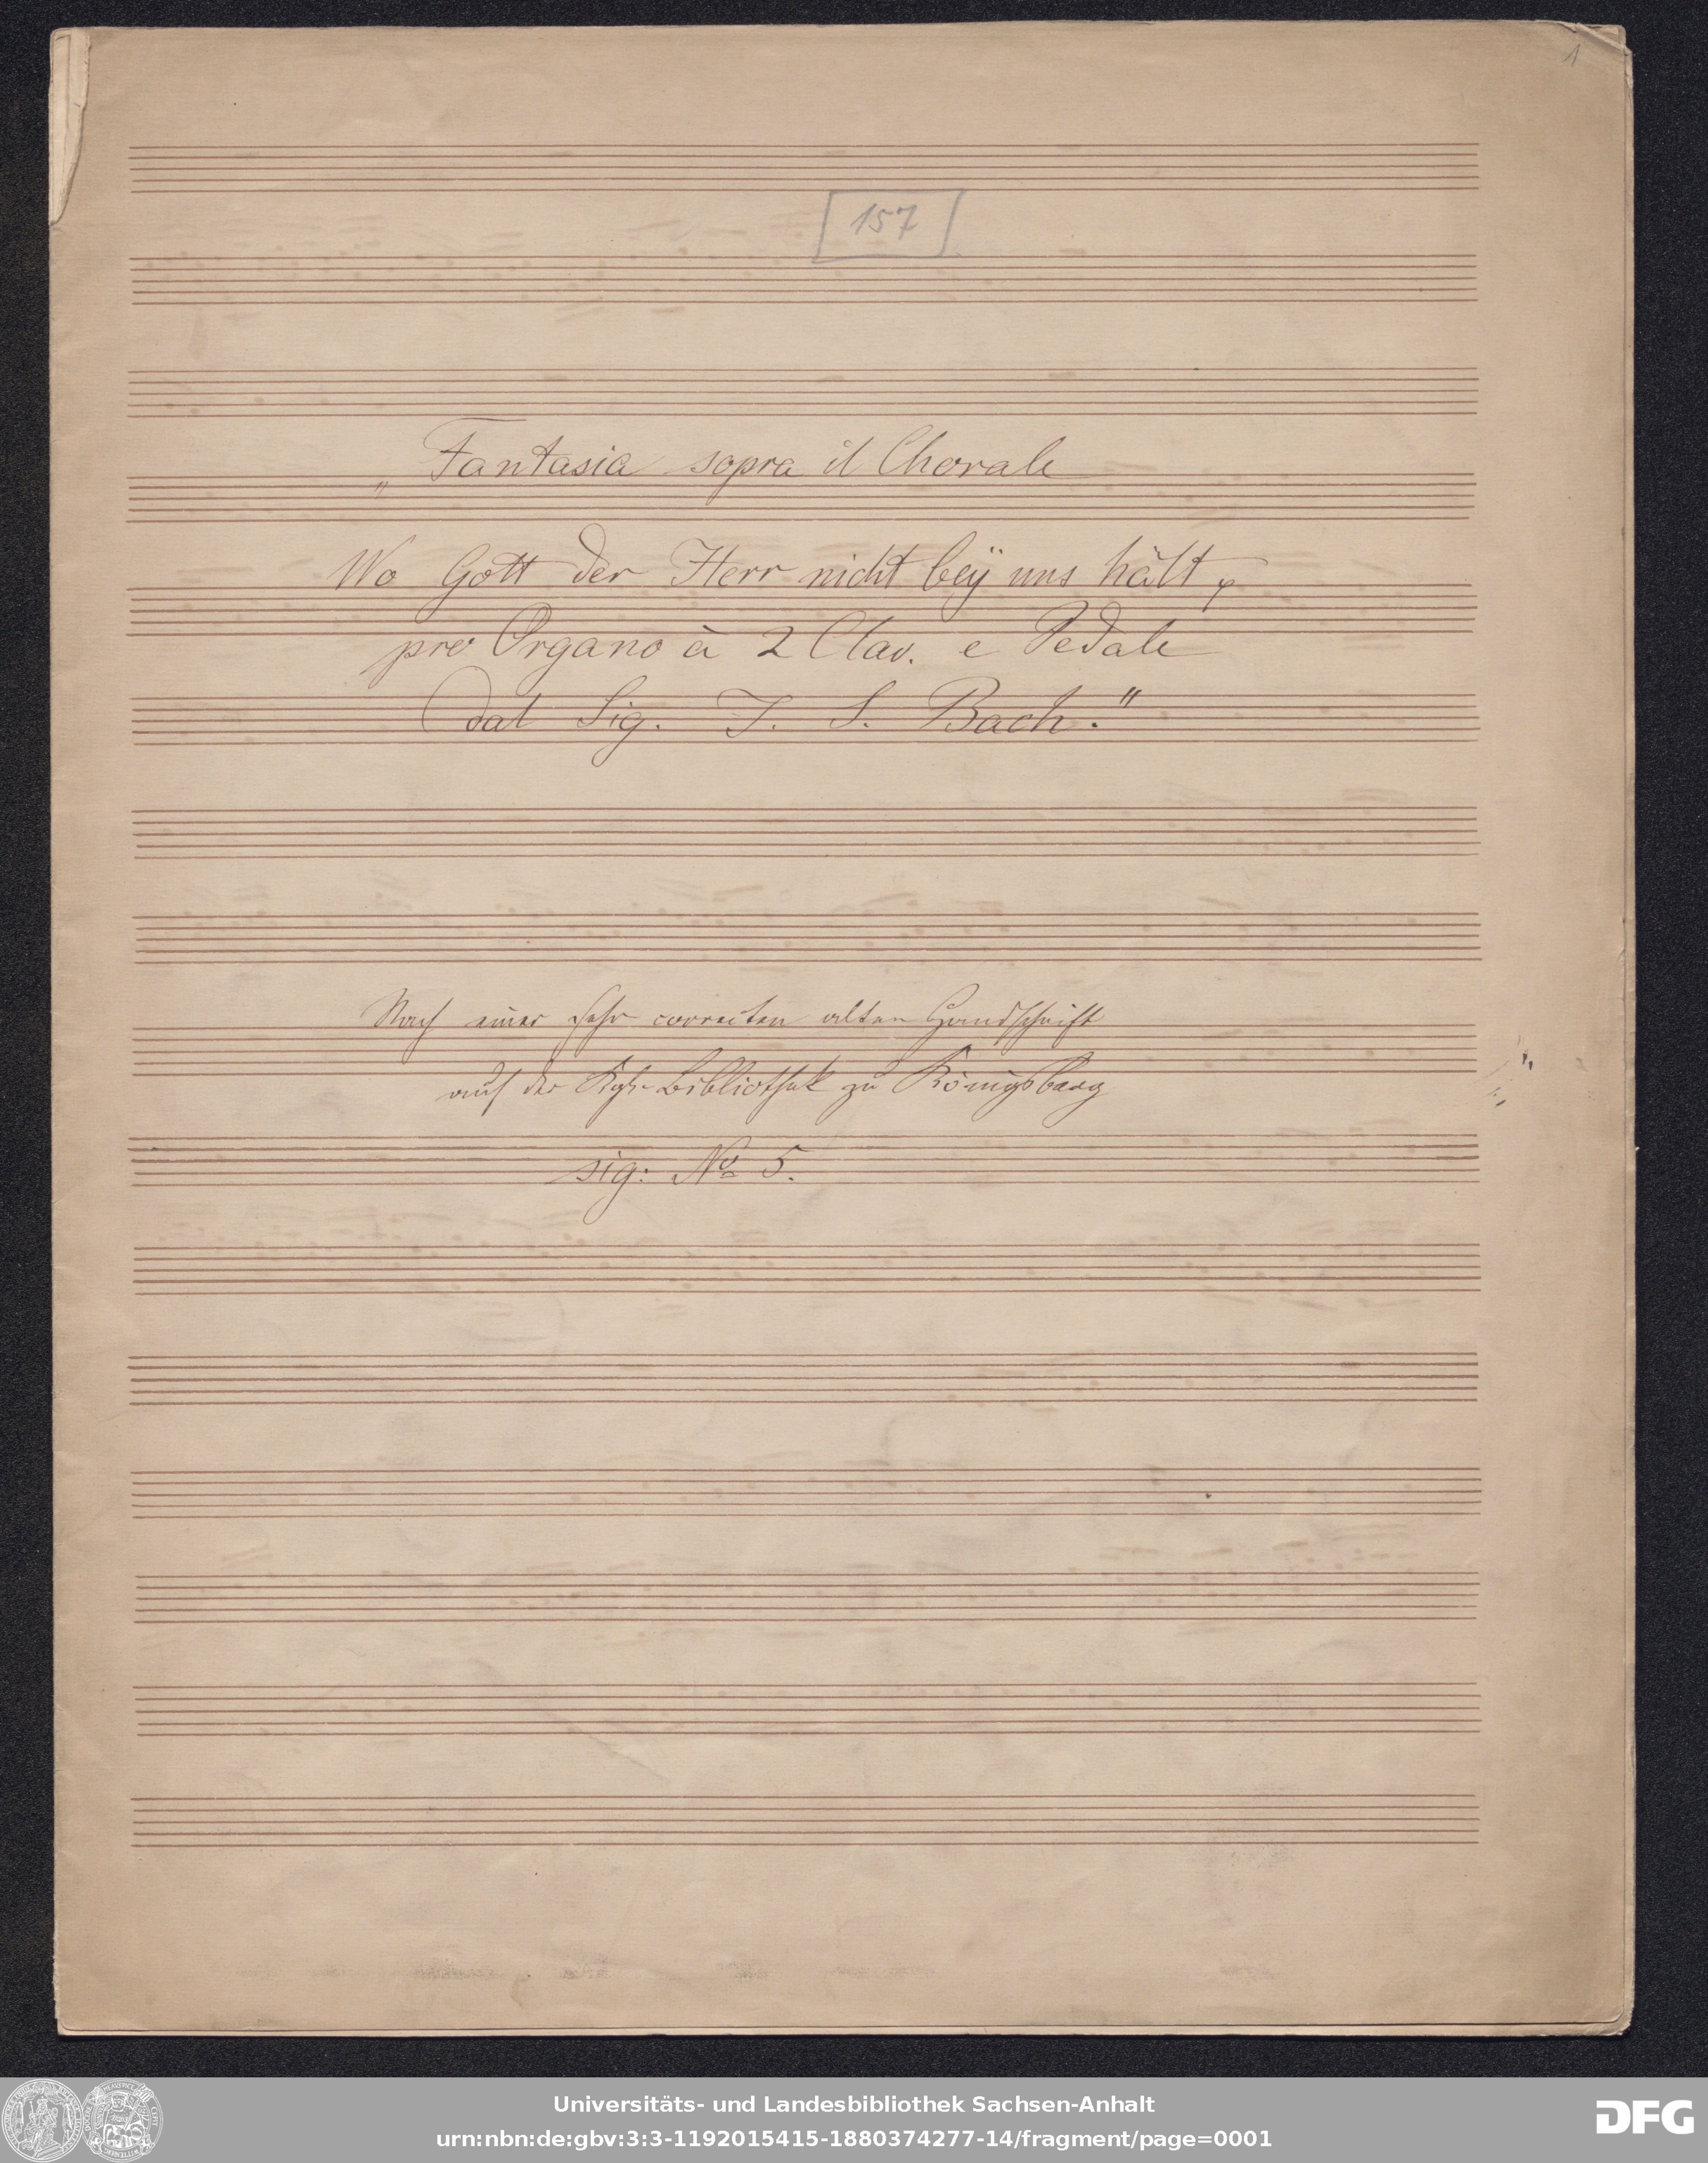 1
157
„Fantasia sopra il Chorale
Wo Gott der Herr nicht beÿ uns hält
pro Organo à 2 Clav. e Pedale
dal Sig. J. S. Bach."
Nach einer sehr correcten alten Handschrift
auf der Kgl. Bibliothek zu Königsberg
sig: No 5.
Universitäts- und Landesbibliothek Sachsen-Anhalt
urn:nbn:de:gbv:3:3-1192015415-1880374277-14/fragment/page=0001
DFG